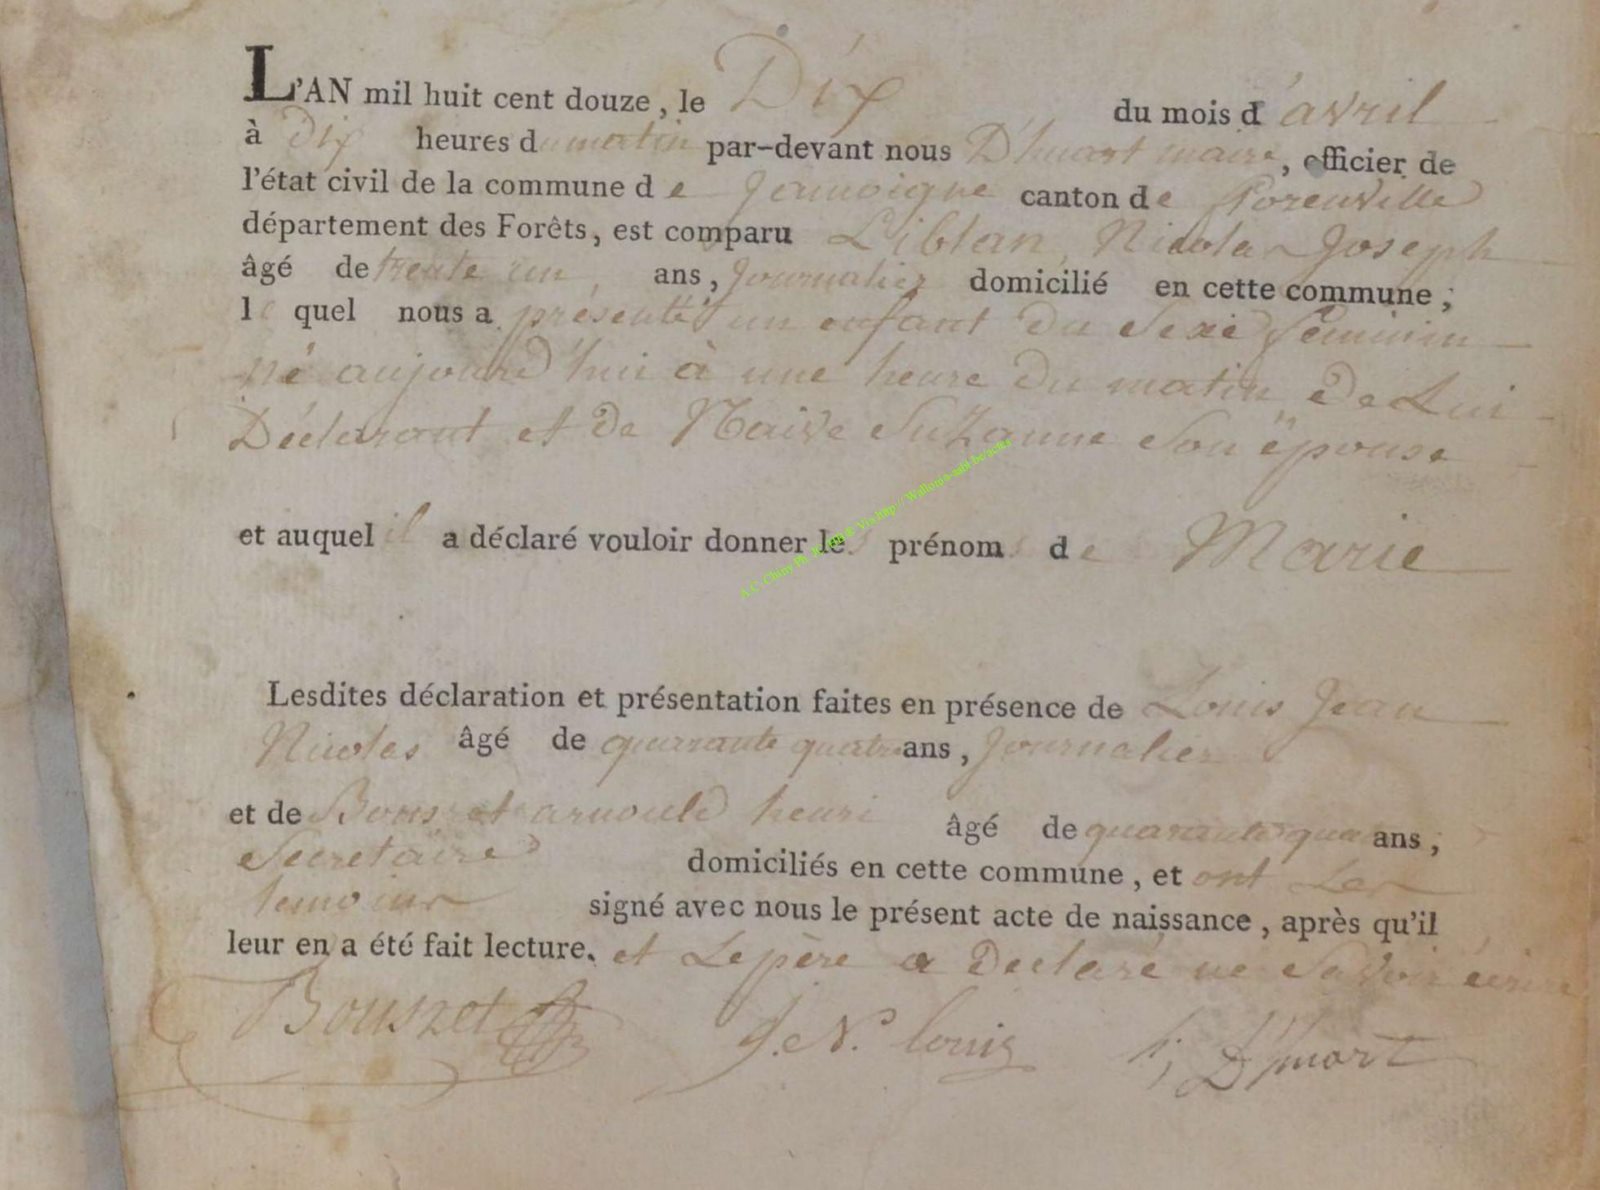 L'AN mil huit cent douze, le Dix du mois d'avril
à dix heures du matin par-devant nous D'huart maire, officier de
l'état civil de la commune de Jamoigne canton de florenville
département des Forêts, est comparu Liblan, Nicolas Joseph
âgé de trente un, ans, Journalier domicilié en cette commune;
le quel nous a présenté un enfant du Sexe féminin
né aujourd'hui à une heure du matin, de Lui
Déclarant et de Naive Suzanne Son épouse
et auquel il a déclaré vouloir donner les prénoms de Marie
Lesdites déclaration et présentation faites en présence de Louis Jean
Nicolas âgé de quarante quatre ans, Journalier
et de Bouszet arnould henri âgé de quarante quatre ans,
Secretaire domiciliés en cette commune, et ont Les
temoins signé avec nous le présent acte de naissance, après qu'il
leur en a été fait lecture. et Le père a Declaré ne Savoir écrire
Bouszet J. N. Louis D'huart
A.C. Chiny Ph.